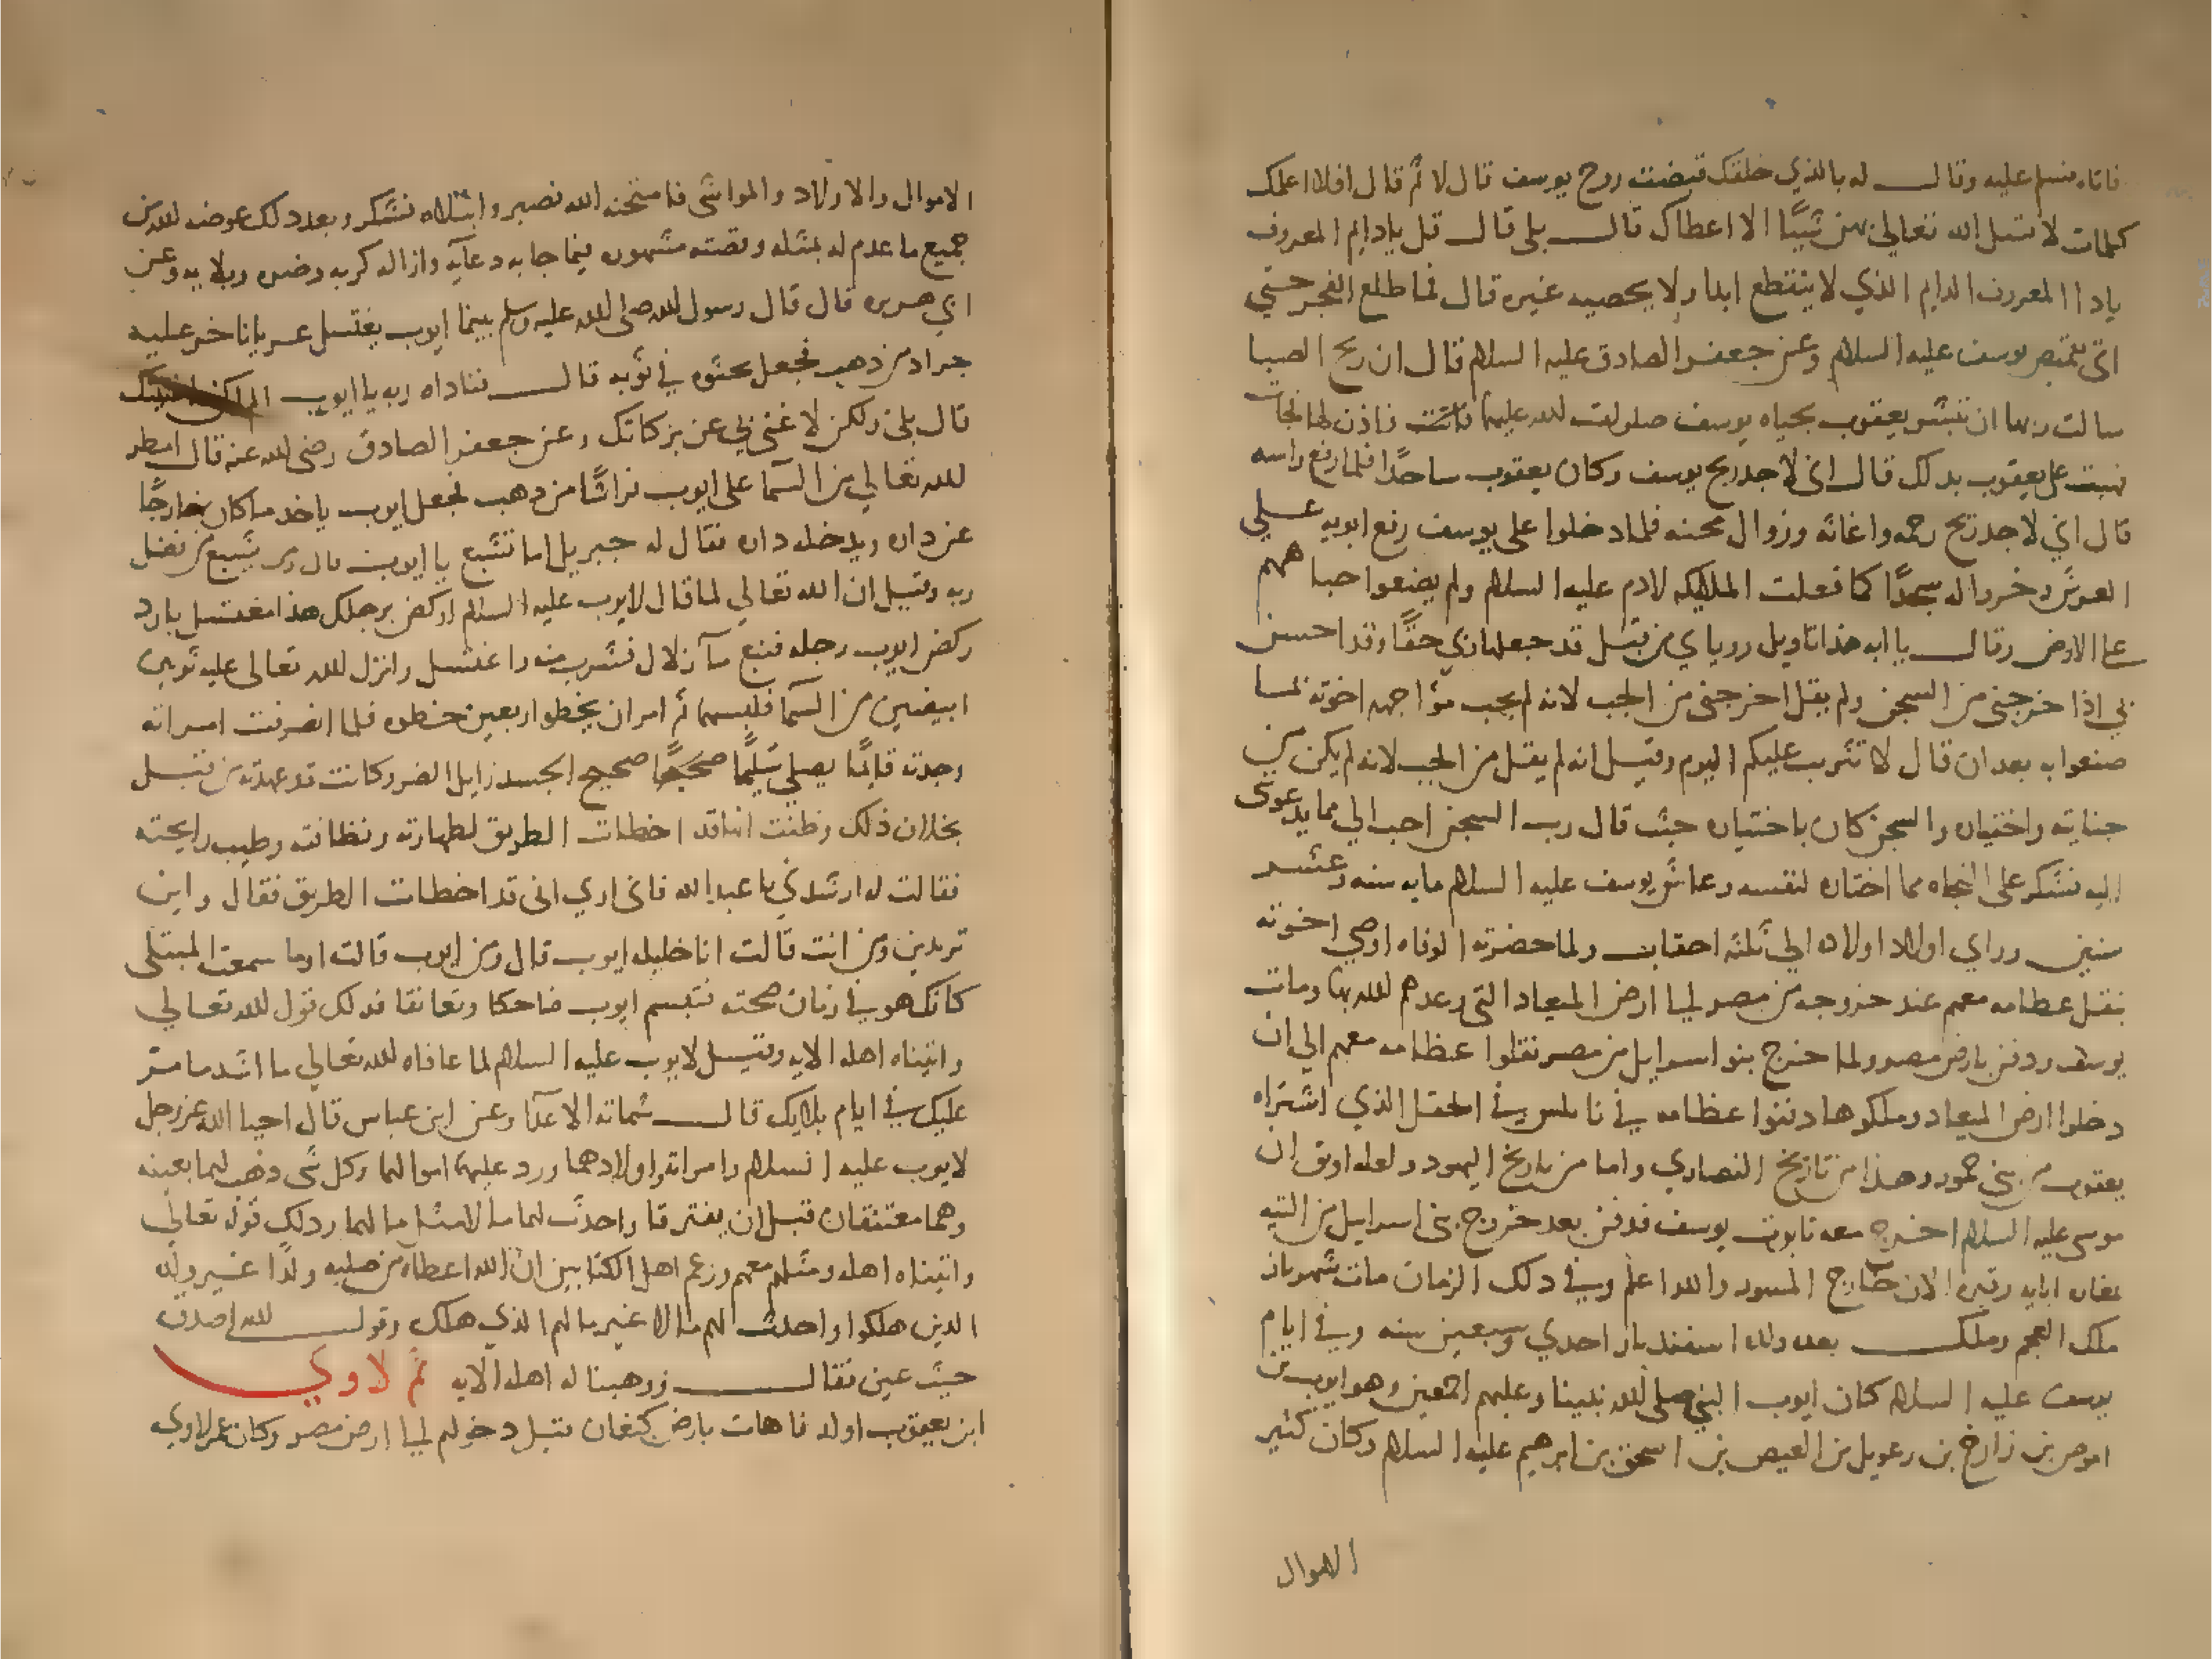 فاتاه فسلم عليه وقال له بالذي خلقك قبضت روح يوسف قال لا ثم قال افلا اعلمك
كلمات لا تسل الله تعالى بهن شيئا الا اعطاك قال بلى قال قل يا دايم المعروف
ياذا المعروف الدايم الذي لا ينقطع ابدا ولا يحصيه غيره قال فما طلع الفجر حتى
اتى بقميص يوسف عليه السلام وعن جعفر الصادق عليه السلام قال ان ريح الصبا
سالت ربها ان تبشر يعقوب بحياه يوسف صلوات الله عليهما فاذن لها فجات
فهبت على يعقوب بذلك قال اني لاجد ريح يوسف وكان يعقوب ساجدا فلما رفع راسه
قال اني لاجد ريح رحمه واغاثه وزوال محنه فلما دخلوا على يوسف رفع ابويه على
العرش وخروا له سجدا كما فعلت الملايكه لادم عليه السلام ولم يضعوا جباههم
على الارض وقال يا ابه هذا تاويل روياي من قبل قد جعلها ربي حقا وقد احسن
بي اذ اخرجني من السجن ولم يقل اخرجني من الجب لانه لم يحب مواجهه اخوته بما
صنعوا به بعد ان قال لا تثريب عليكم اليوم وقيل انه لم يقل من الجب لانه لم يكن من
جنايته واختياره والسجن كان باختياره حيث قال رب السجن احب الي مما يدعونني
اليه فشكر على النجاه مما اختاره لنفسه وعاش يوسف عليه السلام مايه سنه وعشر
سنين وراي اولاد اولاده الى ثلثه احقاب ولما حضرته الوفاه اوصي اخوته
بنقل عظامه معهم عند خروجه من مصر الى ارض الميعاد التي وعدهم الله بها ومات
يوسف ودفن بارض مصر ولما خرج بنو اسرايل من مصر نقلوا عظامه معهم الى ان
دخلوا ارض الميعاد وملكوها دفنوا عظامه في نابلس في الحقل الذي اشتراه
يعقوب من بني حمور وهذا من تاريخ النصاري واما من تاريخ اليهود ولعله اوثق ان
موسى عليه السلام اخرج معه تابوت يوسف فدفن بعد خروج بني اسرايل من التيه
ملك العجم وملك بعده ولده اسفنديار احدي وسبعين سنه وفي ايام
يوسف عليه السلام كان ايوب النبي صلى الله نبينا وعليهم اجمعين وهو ايوب بن
اموص بن زارح بن رعويل بن العيص بن اسحق بن ابرهيم عليه السلام وكان كثير
الاموال
الاموال والاولاد والمواشي فامتحنه الله فصبر وابتلاه فشكر وبعد ذلك عوضه الله من
جميع ما عدم له بمثله وقصته مشهوره فيما جا به دعايه وازاله كربه وضره وبلايه وعن
ابي هريره قال قال رسول الله صلى الله عليه وسلم بينما ايوب يغتسل عريانا خر عليه
جراد من ذهب فجعل يحثوه في ثوبه قال فناداه ربه يا ايوب الم اكن اغنيتك
قال بلى ولكن لا غنى لي عن بركاتك وعن جعفر الصادق رضي الله عنه قال امطر
الله تعالي من السما على ايوب فراشا من ذهب فجعل ايوب ياخذ ما كان خارجا
عن داره ويدخله داره فقال له جبريل اما تشبع يا ايوب قال ومن يشبع من فضل
ربه وقيل ان الله تعالي لما قال لايوب عليه السلام اركض برجلك هذا مغتسل بارد
ركض ايوب رجله فنبع ما زلال فشرب منه واغتسل وانزل الله تعالى عليه ثوبين
ابيضين من السما فلبسهما ثم امر ان يخطو اربعين خطوه فلما انصرفت امراته
وجدته قايما يصلي سليما صحيحا صحيح الجسد زايل الضر وكانت قد عهدته من قبل
بخلاف ذلك وظنت انها قد اخطات الطريق لطهارته ونظافته وطيب رايحته
فقالت له ارشدني يا عبد الله فاني اري اني قد اخطات الطريق فقال واين
تريدين ومن انت قالت انا خليله ايوب قال ومن ايوب قالت اوما سمعت المبتلى
كانك هو في زمان صحته فتبسم ايوب ضاحكا وتعانقا فذلك قول الله تعالي
واتيناه اهله الايه وقيل لايوب عليه السلام لما عافاه الله تعالي ما اشد ما مر
عليك في ايام بلايك قال شماته الاعدا وعن ابن عباس قال احيا الله عز وجل
لايوب عليه السلام امراته واولادهما ورد عليهما اموالهما وكل شي ذهب لهما بعينه
وهما معتنقان قبل ان يفترقا واحدث لهما مالا مثل مالهما وذلك قوله تعالي
واتيناه اهله ومثلهم معهم وزعم اهل الكتابين ان الله اعطاه من صلبه ولدا غير ولده
الذين هلكوا واحدث لهم مالا غير مالهم الذي هلك وقول الله اصدق
حيث عين فقال ووهبنا له اهله الايه ثم لاوي
ابن يعقوب اولد قاهات بارض كنعان قبل دخولهم الى ارض مصر وكان عمر لاوي